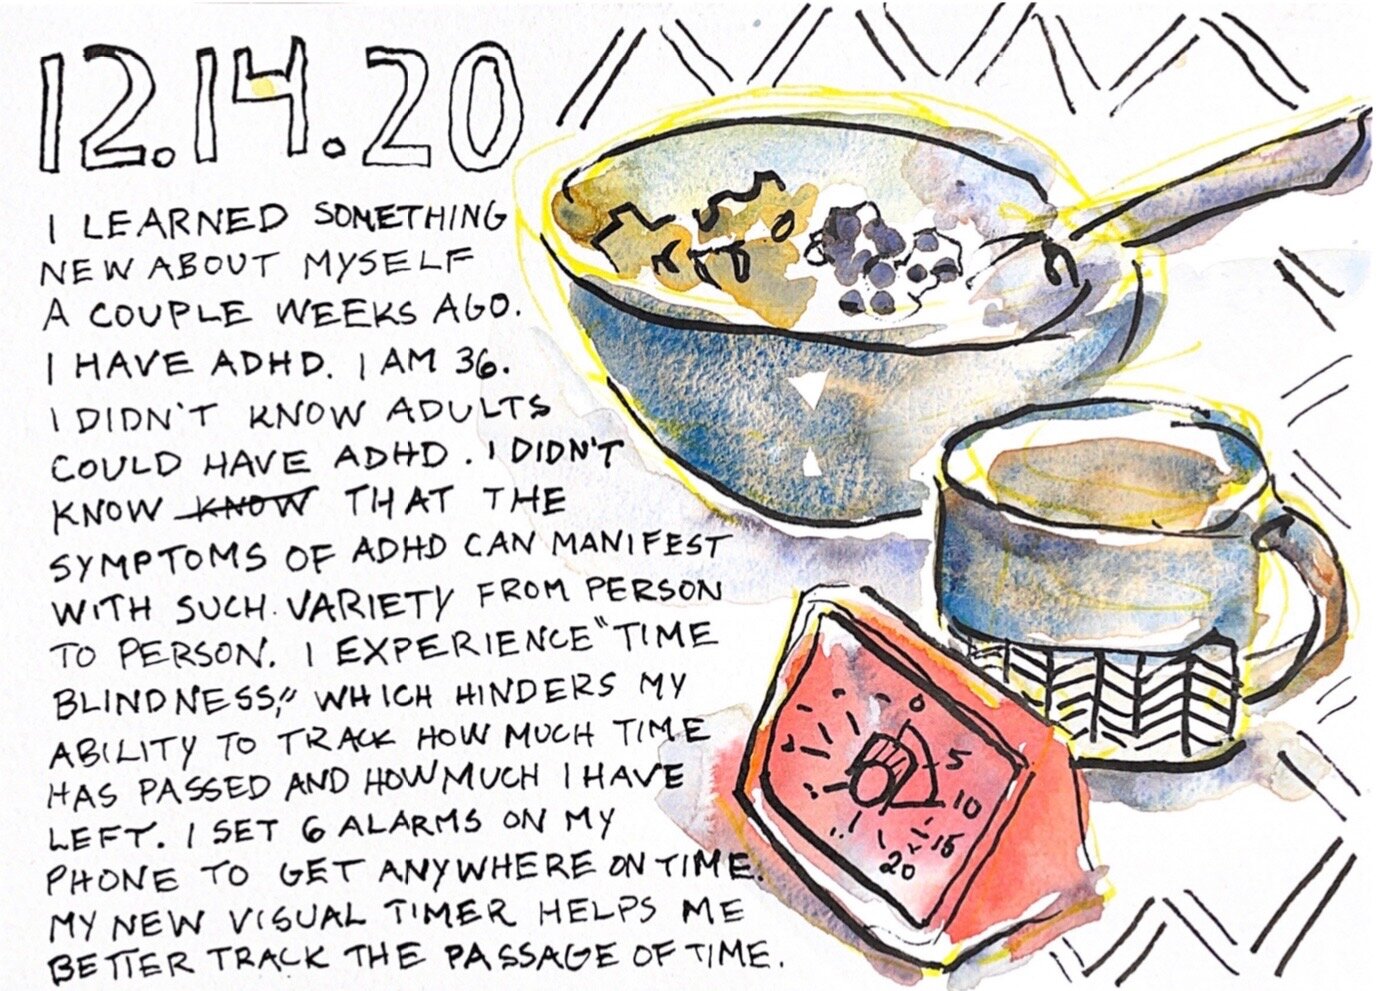 12.14.20
I LEARNED SOMETHING
NEW ABOUT MYSELF
A COUPLE WEEKS AGO.
I HAVE ADHD. I AM 36.
I DIDN'T KNOW ADULTS
COULD HAVE ADHD. I DIDN'T
KNOW KNOW THAT THE
SYMPTOMS OF ADHD CAN MANIFEST
WITH SUCH VARIETY FROM PERSON
TO PERSON. I EXPERIENCE "TIME
BLINDNESS," WHICH HINDERS MY
ABILITY TO TRACK HOW MUCH TIME
HAS PASSED AND HOW MUCH I HAVE
LEFT. I SET 6 ALARMS ON MY
PHONE TO GET ANYWHERE ON TIME.
MY NEW VISUAL TIMER HELPS ME
BETTER TRACK THE PASSAGE OF TIME.
0
5
10
15
20